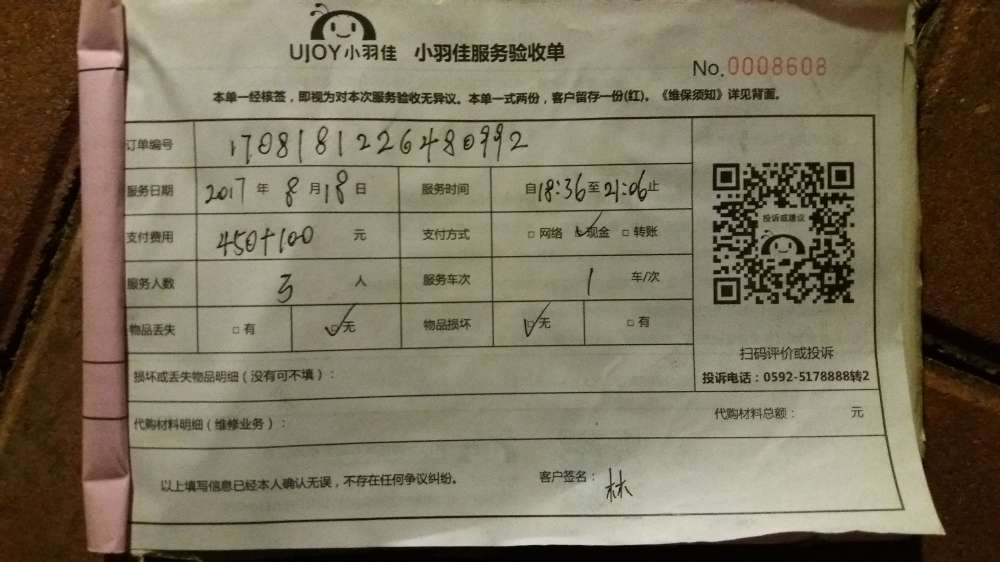 UJOY小羽佳 小羽佳服务验收单
No.0008608
本单一经核签，即视为对本次服务验收无异议。本单一式两份，客户留存一份(红)。《维保须知》详见背面。
订单编号 1708181226480992
服务日期 2017年8月18日 服务时间 自18:36至21:06止
投诉或建议
支付费用 450+100 元 支付方式 □网络 ☑现金 □转账
服务人数 3 人 服务车次 1 车/次
物品丢失 □有 ☑无 物品损坏 ☑无 □有
扫码评价或投诉
损坏或丢失物品明细（没有可不填）：
投诉电话：0592-5178888转2
代购材料明细（维修业务）： 代购材料总额： 元
以上填写信息已经本人确认无误，不存在任何争议纠纷。 客户签名：林